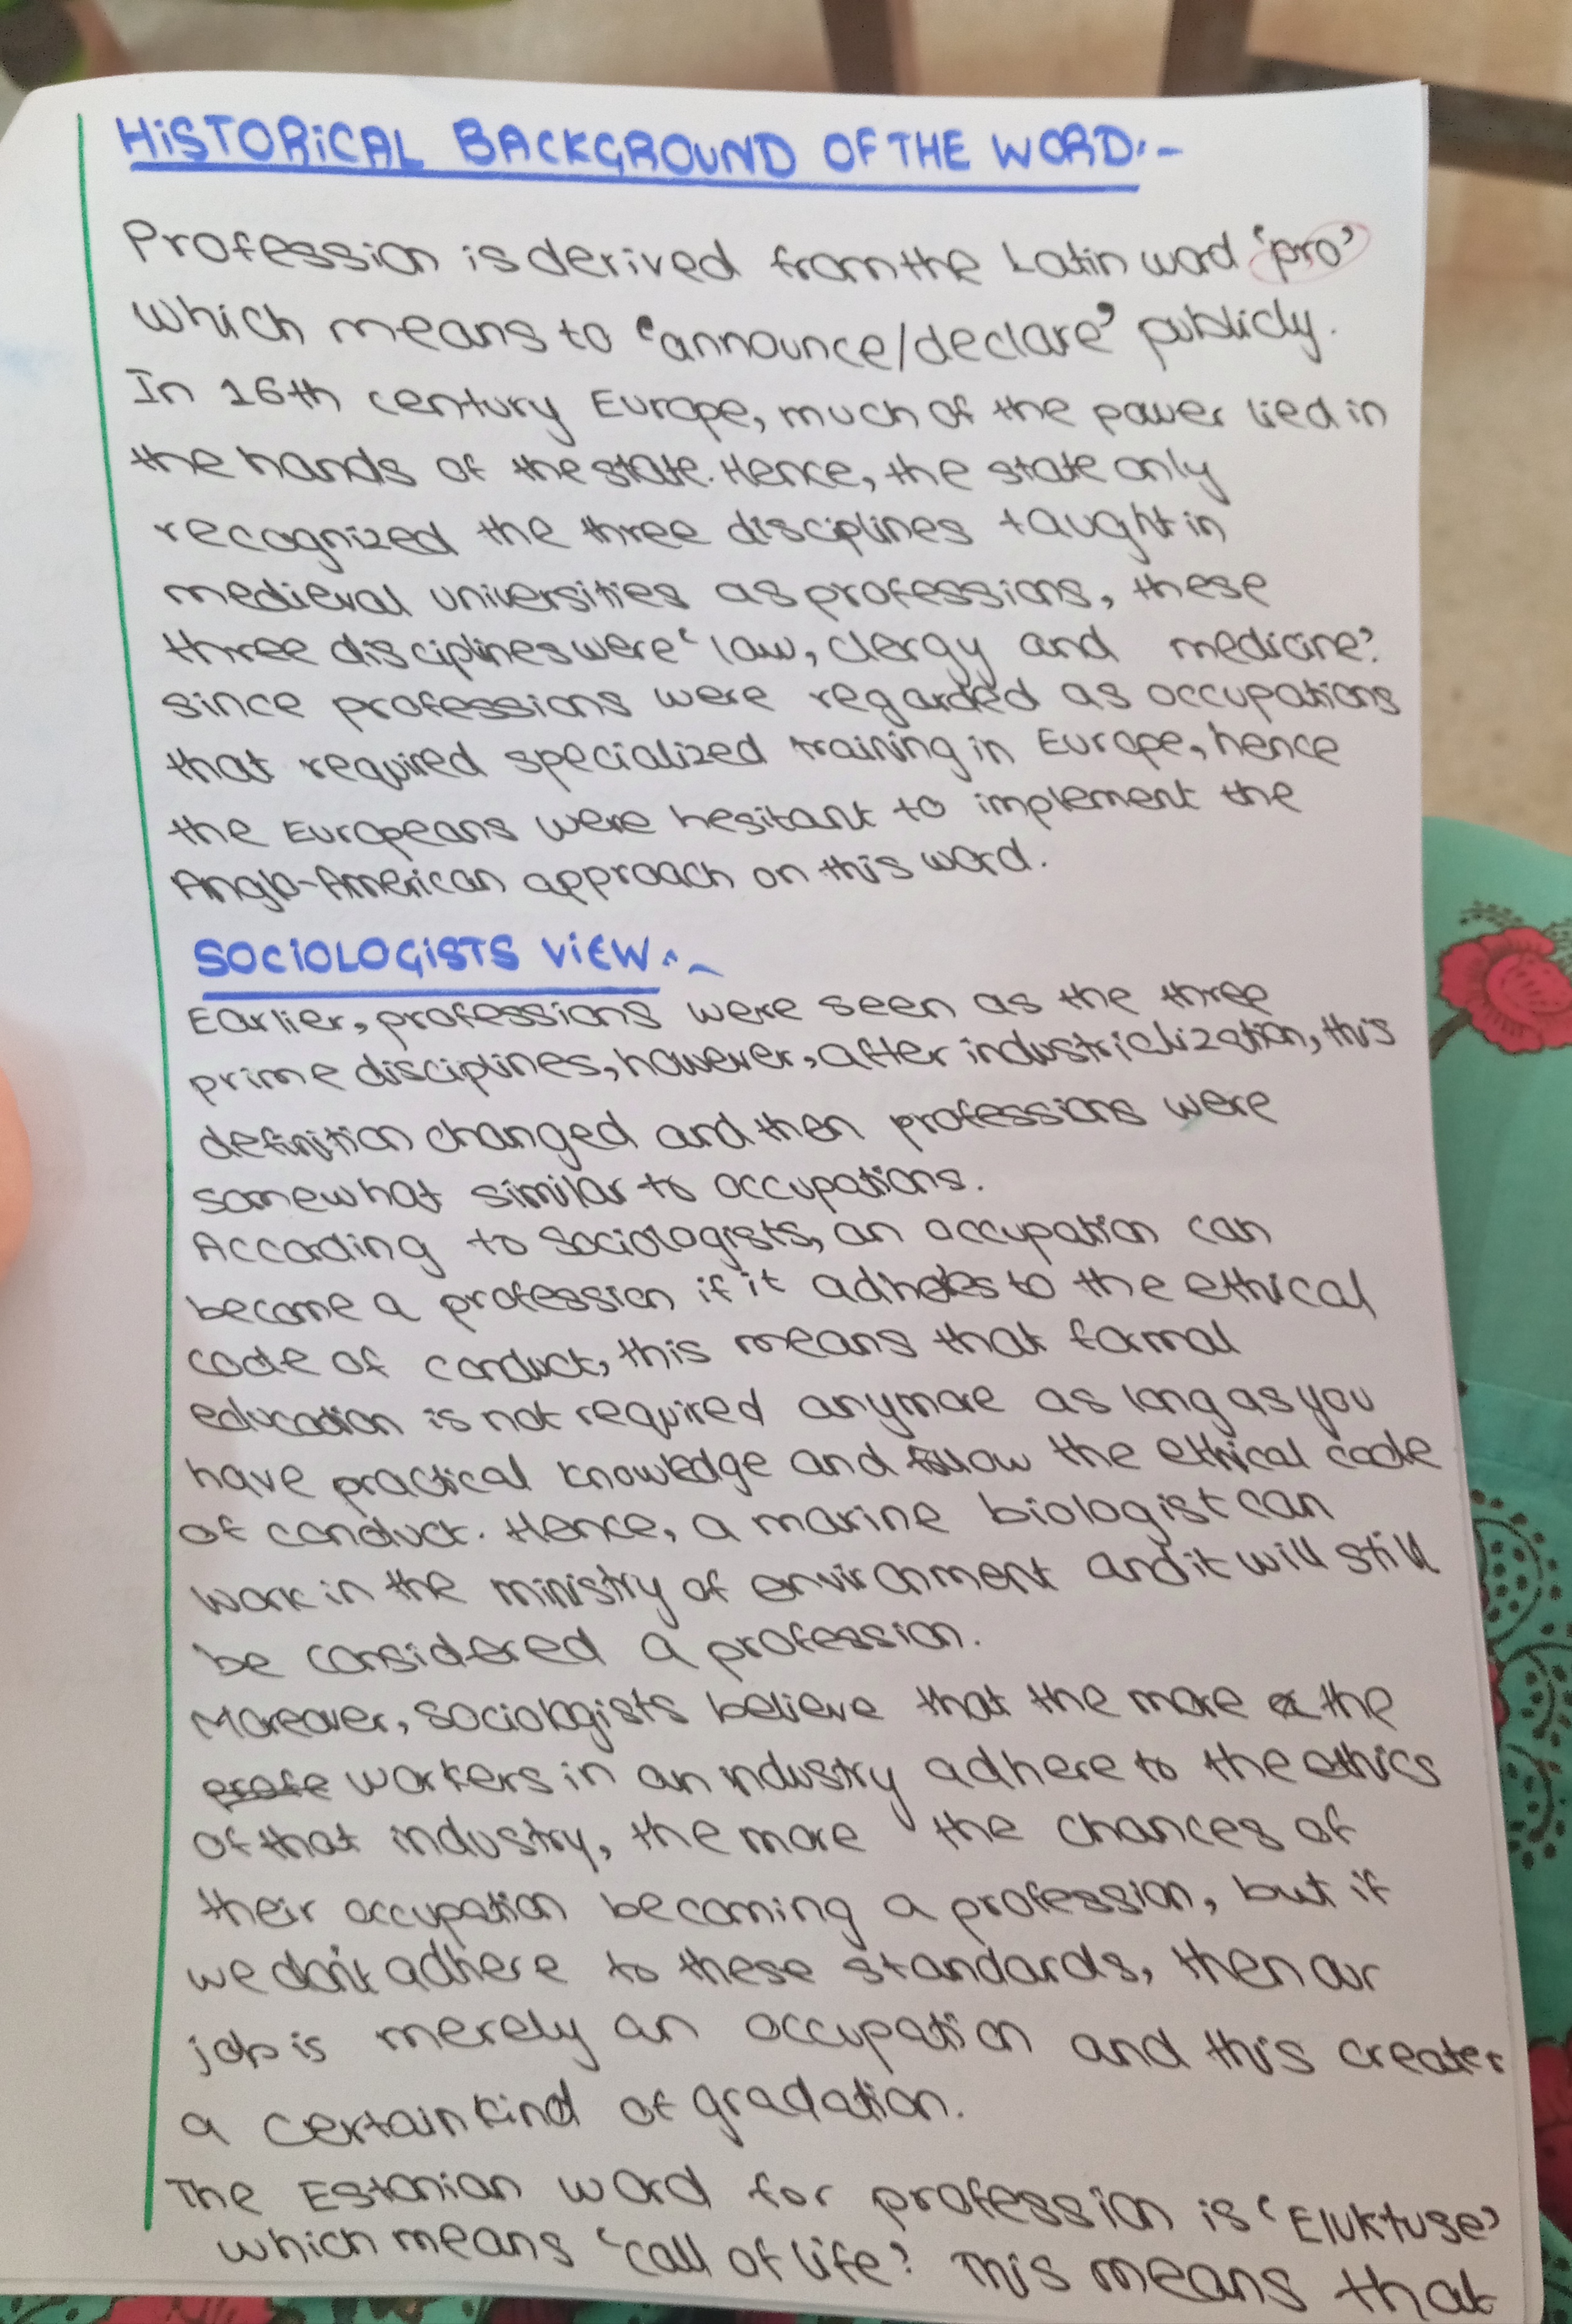 HISTORICAL BACKGROUND OF THE WORD:-
Profession is derived from the Latin word 'pro'
which means to 'announce/declare' publicly.
In 16th century Europe, much of the power lied in
the hands of the state. Hence, the state only
recognized the three disciplines taught in
medieval universities as professions, these
three disciplines were 'law, clergy and medicine'.
since professions were regarded as occupations
that required specialized training in Europe, hence
the Europeans were hesitant to implement the
Anglo-American approach on this word.
SOCIOLOGISTS VIEW:-
Earlier, professions were seen as the three
prime disciplines, however, after industrialization, this
definition changed and then professions were
somewhat similar to occupations.
According to sociologists, an occupation can
become a profession if it adheres to the ethical
code of conduct, this means that formal
education is not required anymore as long as you
have practical knowledge and follow the ethical code
of conduct. Hence, a marine biologist can
work in the ministry of environment and it will still
be considered a profession.
Moreover, sociologists believe that the more the
profe workers in an industry adhere to the ethics
of that industry, the more the chances of
their occupation becoming a profession, but if
we don't adhere to these standards, then our
job is merely an occupation and this creates
a certain kind of gradation.
The Estonian word for profession is 'Eluktuse'
which means 'call of life'. This means that